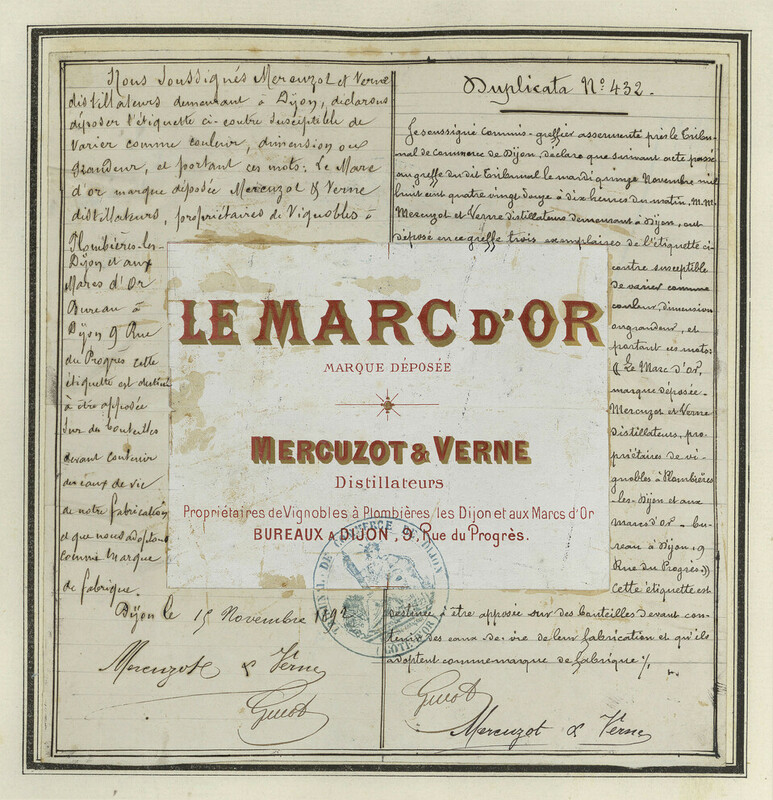 Nous soussignés Mercuzot et Verne
distillateurs demeurant à Dijon, déclarons
déposer l'étiquette ci-contre susceptible de
varier comme couleur, dimension ou
grandeur, et portant ces mots: Le Marc
d'or marque déposée Mercuzot & Verne
distillateurs, propriétaires de Vignobles à
Plombières-les-
Dijon et aux
Marcs d'Or
Bureau à
Dijon 9 Rue
du Progrès cette
étiquette est destinée
à être apposée
sur des bouteilles
devant contenir
des eaux de vie
de notre fabrication
et que nous adoptons
comme Marque
de fabrique.
Dijon le 15 Novembre 1892
Mercuzot & Verne
Guiot
Duplicata N° 432.
Je soussigné commis-greffier assermenté près le Tribu-
nal de commerce de Dijon, déclare que suivant acte passé
au greffe du dit Tribunal le mardi quinze Novembre mil
huit cent quatre vingt douze à dix heures du matin, M.M.
Mercuzot et Verne distillateurs demeurant à Dijon, ont
déposé en ce greffe trois exemplaires de l'étiquette ci-
contre susceptible
de varier comme
couleur, dimension
ou grandeur, et
portant ces mots
(( Le Marc d'Or,
marque déposée-
Mercuzot et Verne
Distillateurs, pro-
priétaires de vi-
gnobles à Plombières
-les-Dijon et aux
marcs d'or - bu-
reau à Dijon, 9
Rue du Progrès))
Cette étiquette est
destinée à être apposée sur des bouteilles devant con-
tenir des eaux de vie de leur fabrication et qu'ils
adoptent comme marque de fabrique ./.
Guiot
Mercuzot & Verne
LE MARC D'OR
MARQUE DÉPOSÉE
MERCUZOT & VERNE
Distillateurs
Propriétaires de Vignobles à Plombières les Dijon et aux Marcs d'Or
BUREAUX A DIJON, 9, Rue du Progrès.
TRIBUNAL DE COMMERCE DE DIJON
(CÔTE D'OR)